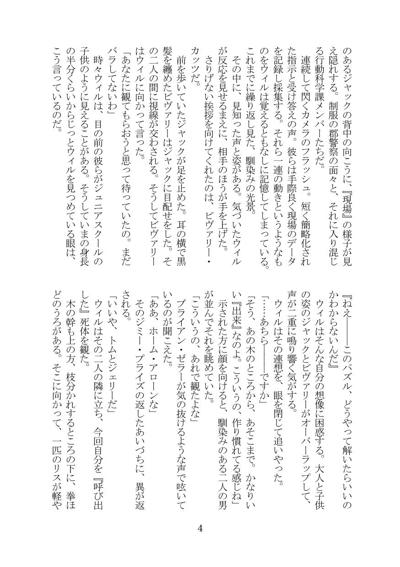 のあるジャックの背中の向こうに、『現場』の様子が見
え隠れする。制服の郡警察の面々と、それに入り混じ
る行動科学課メンバーたちだ。
連続して閃くカメラのフラッシュ。短く簡略化され
た指示と受け答えの声。彼らは手際良く現場のデータ
を記録し採集する。それら一連の動きというようなも
のをウィルは覚えるともなしに記憶してしまっている。
これまでに繰り返し見た、馴染みの光景。
その中に、見知った声と姿がある。気づいたウィル
が反応を見せるまえに、相手のほうが手を上げた。
さりげない挨拶を向けてくれたのは、ビヴァリー・
カッツだ。
前を歩いていたジャックが足を止めた。耳の横で黒
髪を纏めたビヴァリーはジャックに目配せをした。そ
の二人の間に視線が交わされる。そうしてビヴァリー
はウィルに向って言った。
「あなたに観てもらおうと思って待っていたの。まだ
バラしてないわ」
時々ウィルは、目の前の彼らがジュニアスクールの
子供のように見えることがある。そうしていまの身長
の半分くらいからじっとウィルを見つめている眼は、
こう言っているのだ。
『ねえ――このパズル、どうやって解いたらいいの
かわからないんだ』
ウィルはそんな自分の想像に困惑する。大人と子供
の姿のジャックとビヴァリーがオーバーラップして、
声が二重に鳴り響く気がする。
ウィルはその連想を、眼を閉じて追いやった。
「……あちら――ですか」
「そう、あの木のところから、あそこまで。かなりい
い『出来』なのよ。こういうの、作り慣れてる感じね」
示された方に顔を向けると、馴染みのある二人の男
が並んでそれを眺めていた。
「こういうの、あれで観たよな」
ブライアン・ゼラーが気の抜けるような声で呟いて
いるのが聞こえた。
「ああ、ホーム・アローンな」
そのジミー・プライズの返したあいづちに、異が返
る。
「いいや、トムとジェリーだ」
ウィルはその二人の隣に立ち、今回自分を『呼び出
した』死体を観た。
木の幹の上の方、枝分かれするところの下に、拳ほ
どのうろがある。そこに向かって、一匹のリスが軽や
4